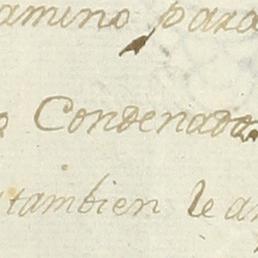 amino para
o Condenado
tambien le a